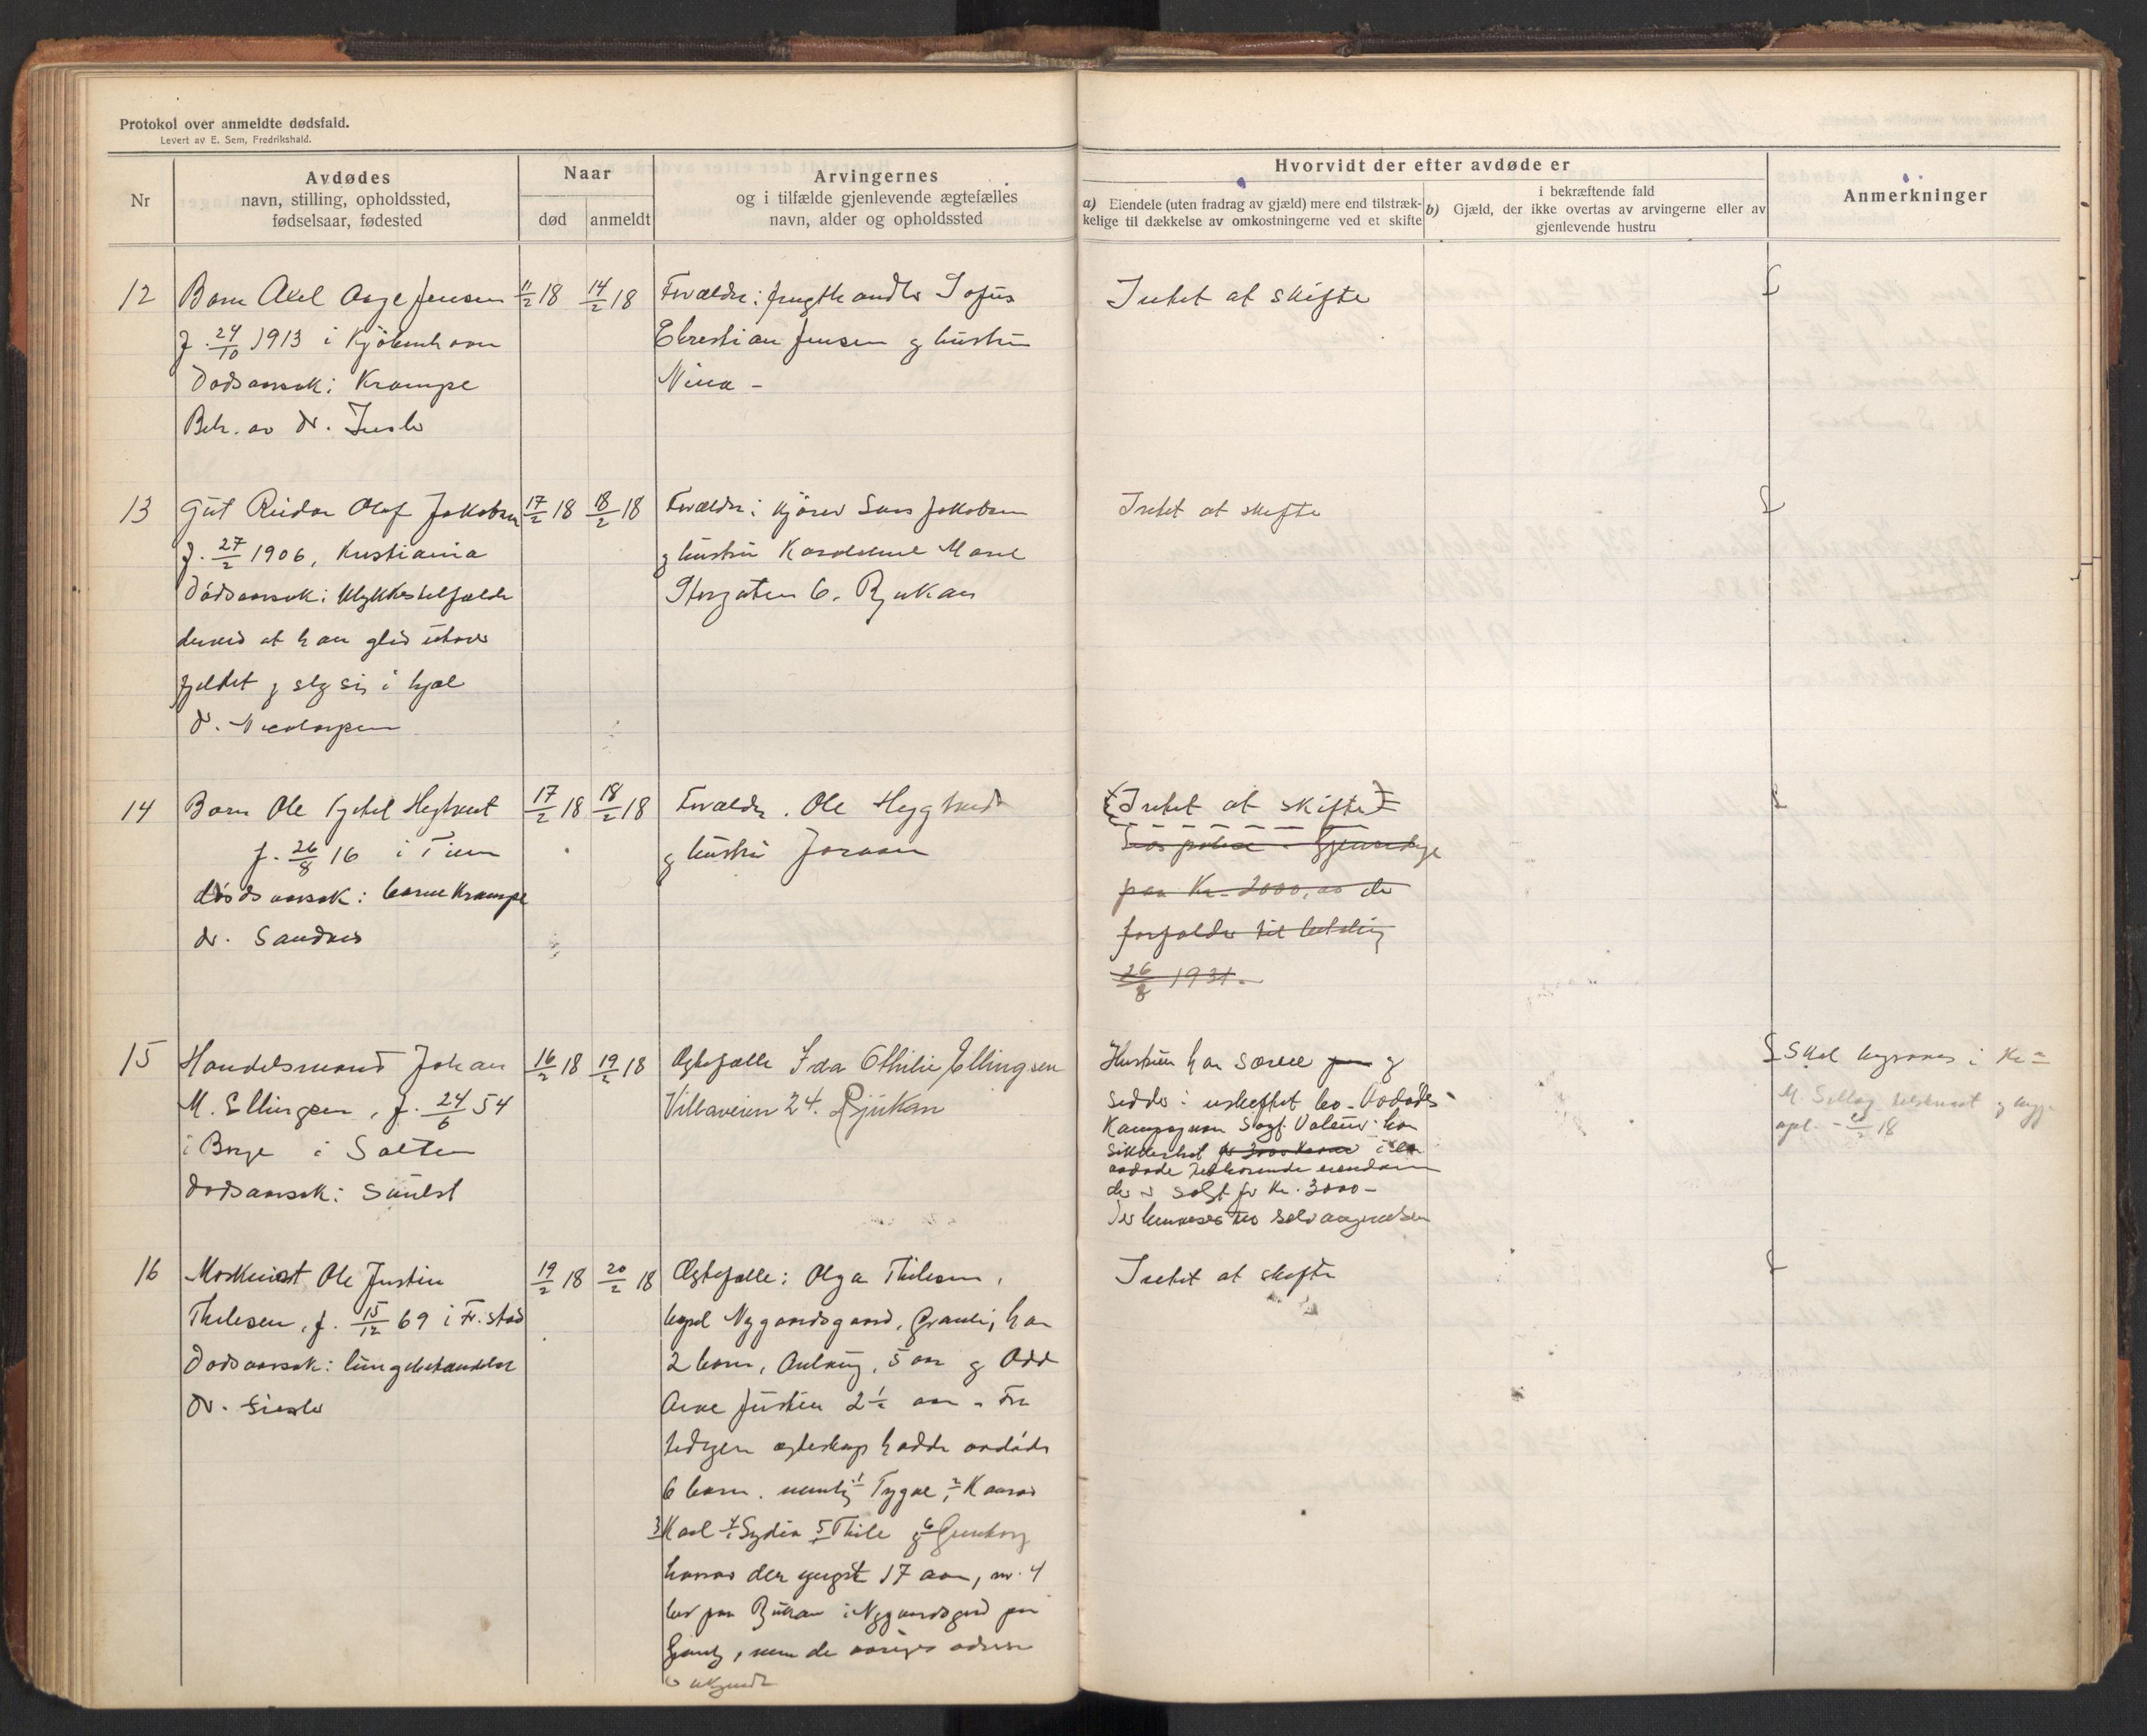 Protokol over anmeldte dødsfald.
Levert av E. Sem, Fredrikshald.
Nr
Avdødes
navn, stilling, opholdssted,
fødselsaar, fødested
Naar
død
anmeldt
Arvingernes
og i tilfælde gjenlevende ægtefælles
navn, alder og opholdssted
Hvorvidt der efter avdøde er
a) Eiendele (uten fradrag av gjæld) mere end tilstræk-
kelige til dækkelse av omkostningerne ved et skifte
i bekræftende fald
b) Gjæld, der ikke overtas av arvingerne eller av
gjenlevende hustru
Anmerkninger
12
Barn Axel Aage Jensen
f. 24/10 1913 i Kjøbenhavn
Dødsaarsak: Krampe
Beh. av Dr.
11/2 18
14/2 18
Forældre: frugthandler Sofus
Christian Jensen og hustru
Nina -
Intet at skifte
13
Gut Reidar Olaf Jakobsen
f. 27/2 1906, Kristiania
Dødsaarsak: Ulykkestilfælde
derved at han gled utover
fjeldet og slog sig i hjæl
Dr. Nicolaysen
17/2 18
18/2 18
Forældre: kjører Lars Jakobsen
og hustru Marie
Storgaten 6. Rjukan
Intet at skifte
14
Barn Ole Kjetil Hegtveit
f. 26/8 16 i Tinn
dødsaarsak: barnekrampe
dr. Sandnes
17/2 18
18/2 18
Forældre. Ole
og hustru Joraan
Intet at skifte
paa Kr. 2000, as der
forfalder til betaling
26/8 1931.
15
Handelsmand Johan
M. Ellingsen, f. 24/6 54
i Borge i Salten
Dødsaarsak:
16/2 18
19/2 18
Ægtefælle Ida Othilie Ellingsen
Villaveien 24. Rjukan
Hustruen har særeie og
sidder i uskiftet bo. Avdødes
Kompagnon har
sikkerhet i en
avdøde tilhørende eiendom
der er solgt for Kr. 3000-
Der henvises til selvangivelsen
Skal i Kr=a
16
Maskinist Ole Justin
Thilesen, f. 15/12 69 i Fr. stad
Dødsaarsak: lungebetændelse
Dr.
19/2 18
20/2 18
Ægtefælle: Olga Thilesen,
bopæl Nygaardsgaard, har
2 barn, 5 aar og Odd
Arne Justin 2½ aar. Fra
tidligere egteskap hadde avdøde
6 barn. nemlig 1 2
3 Karl 4 5 Thile og 6 Gunborg
hvorav den yngste 17 aar, nr. 4
bor paa Rjukan i Nygaardsgaard
men de øvriges adresse
er ukjendt
Intet at skifte